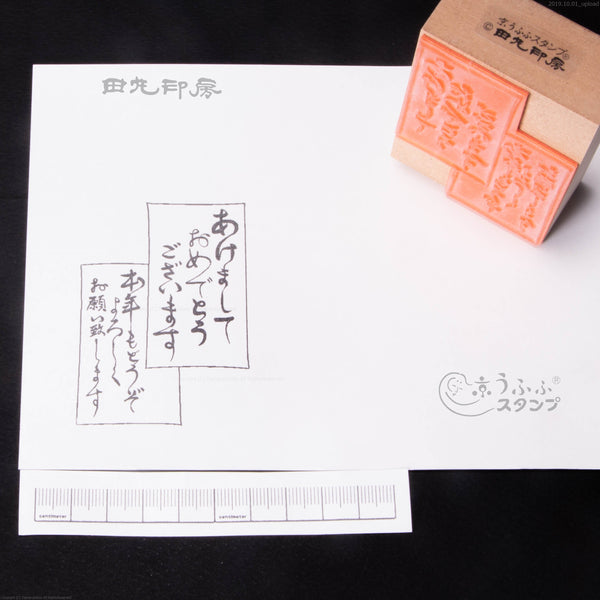 2019.10.01_upload
京うふふスタンプ®
©田丸印房
田丸印房
あけまして
おめでとう
ございます
本年もどうぞ
よろしく
お願い致します
京うふふ®
スタンプ
centimeter
centimeter